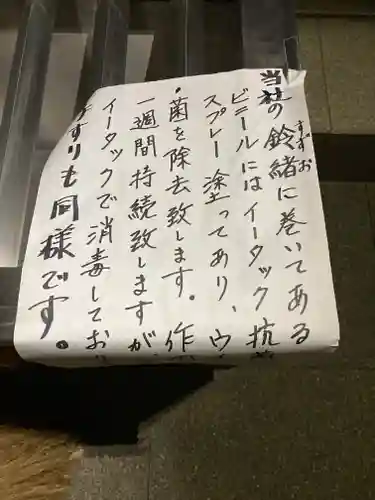 当社の鈴緒に巻いてある
すずお
ビニールにはイータック抗菌
スプレー塗ってあり、ウ
・菌を除去致します。作
一週間持続致しますが、
イータックで消毒してお
手すりも同様です。